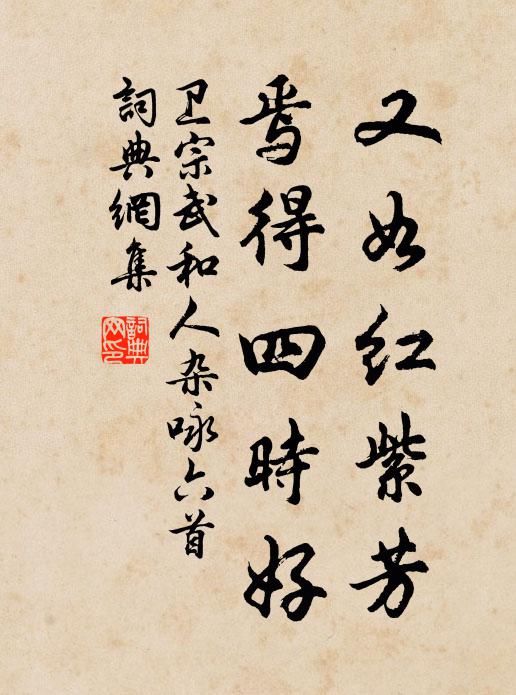 又如红紫芳
焉得四時好
卫宗武和人杂咏六首
詞典網集
詞典网印